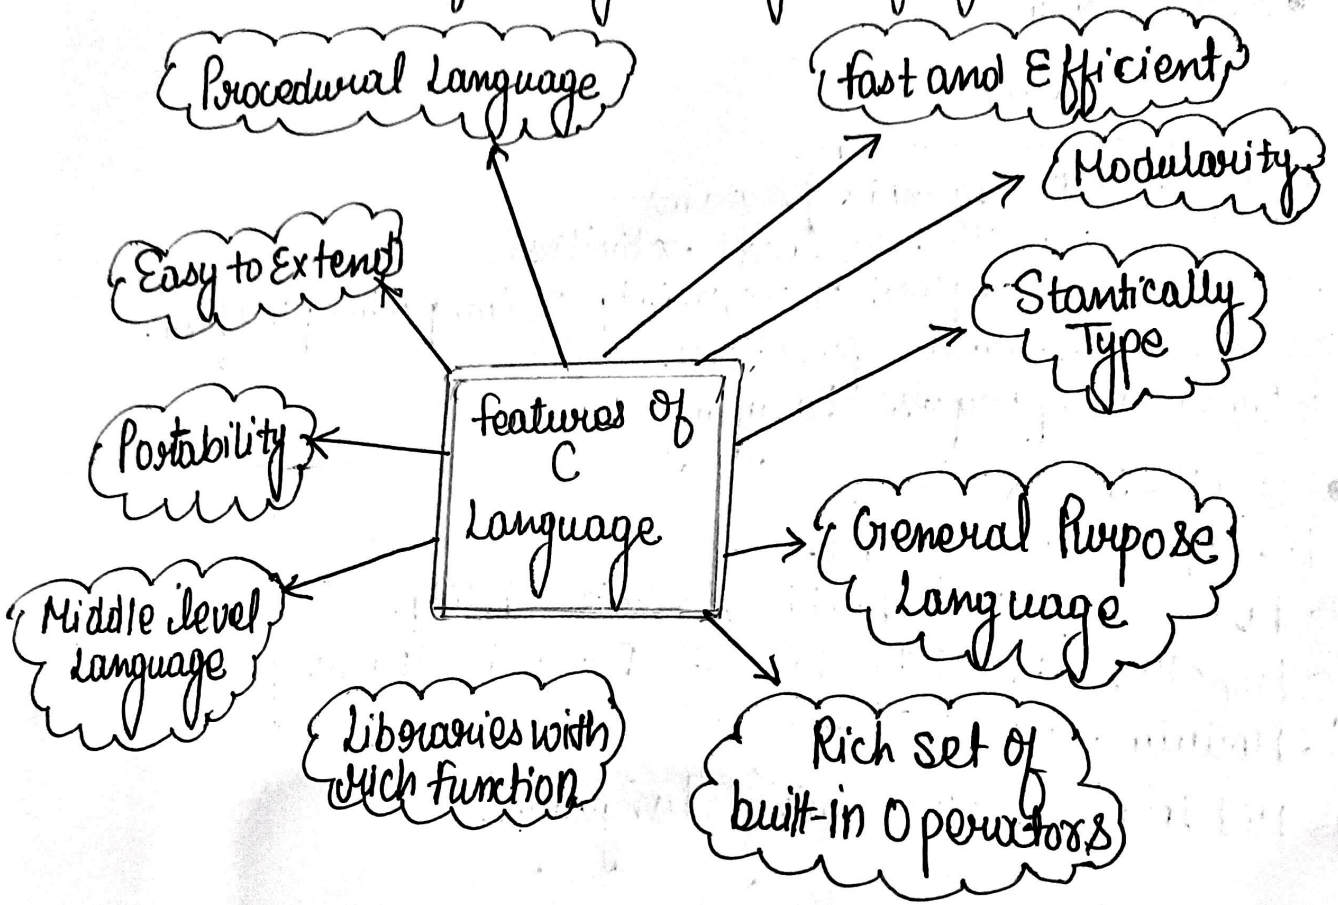 Procedural Language
fast and Efficient
Modularity
Easy to Extend
Stantically
Type
Portability
features of
C
Language
General Purpose
Language
Middle level
Language
Libraries with
rich function
Rich set of
built-in Operators